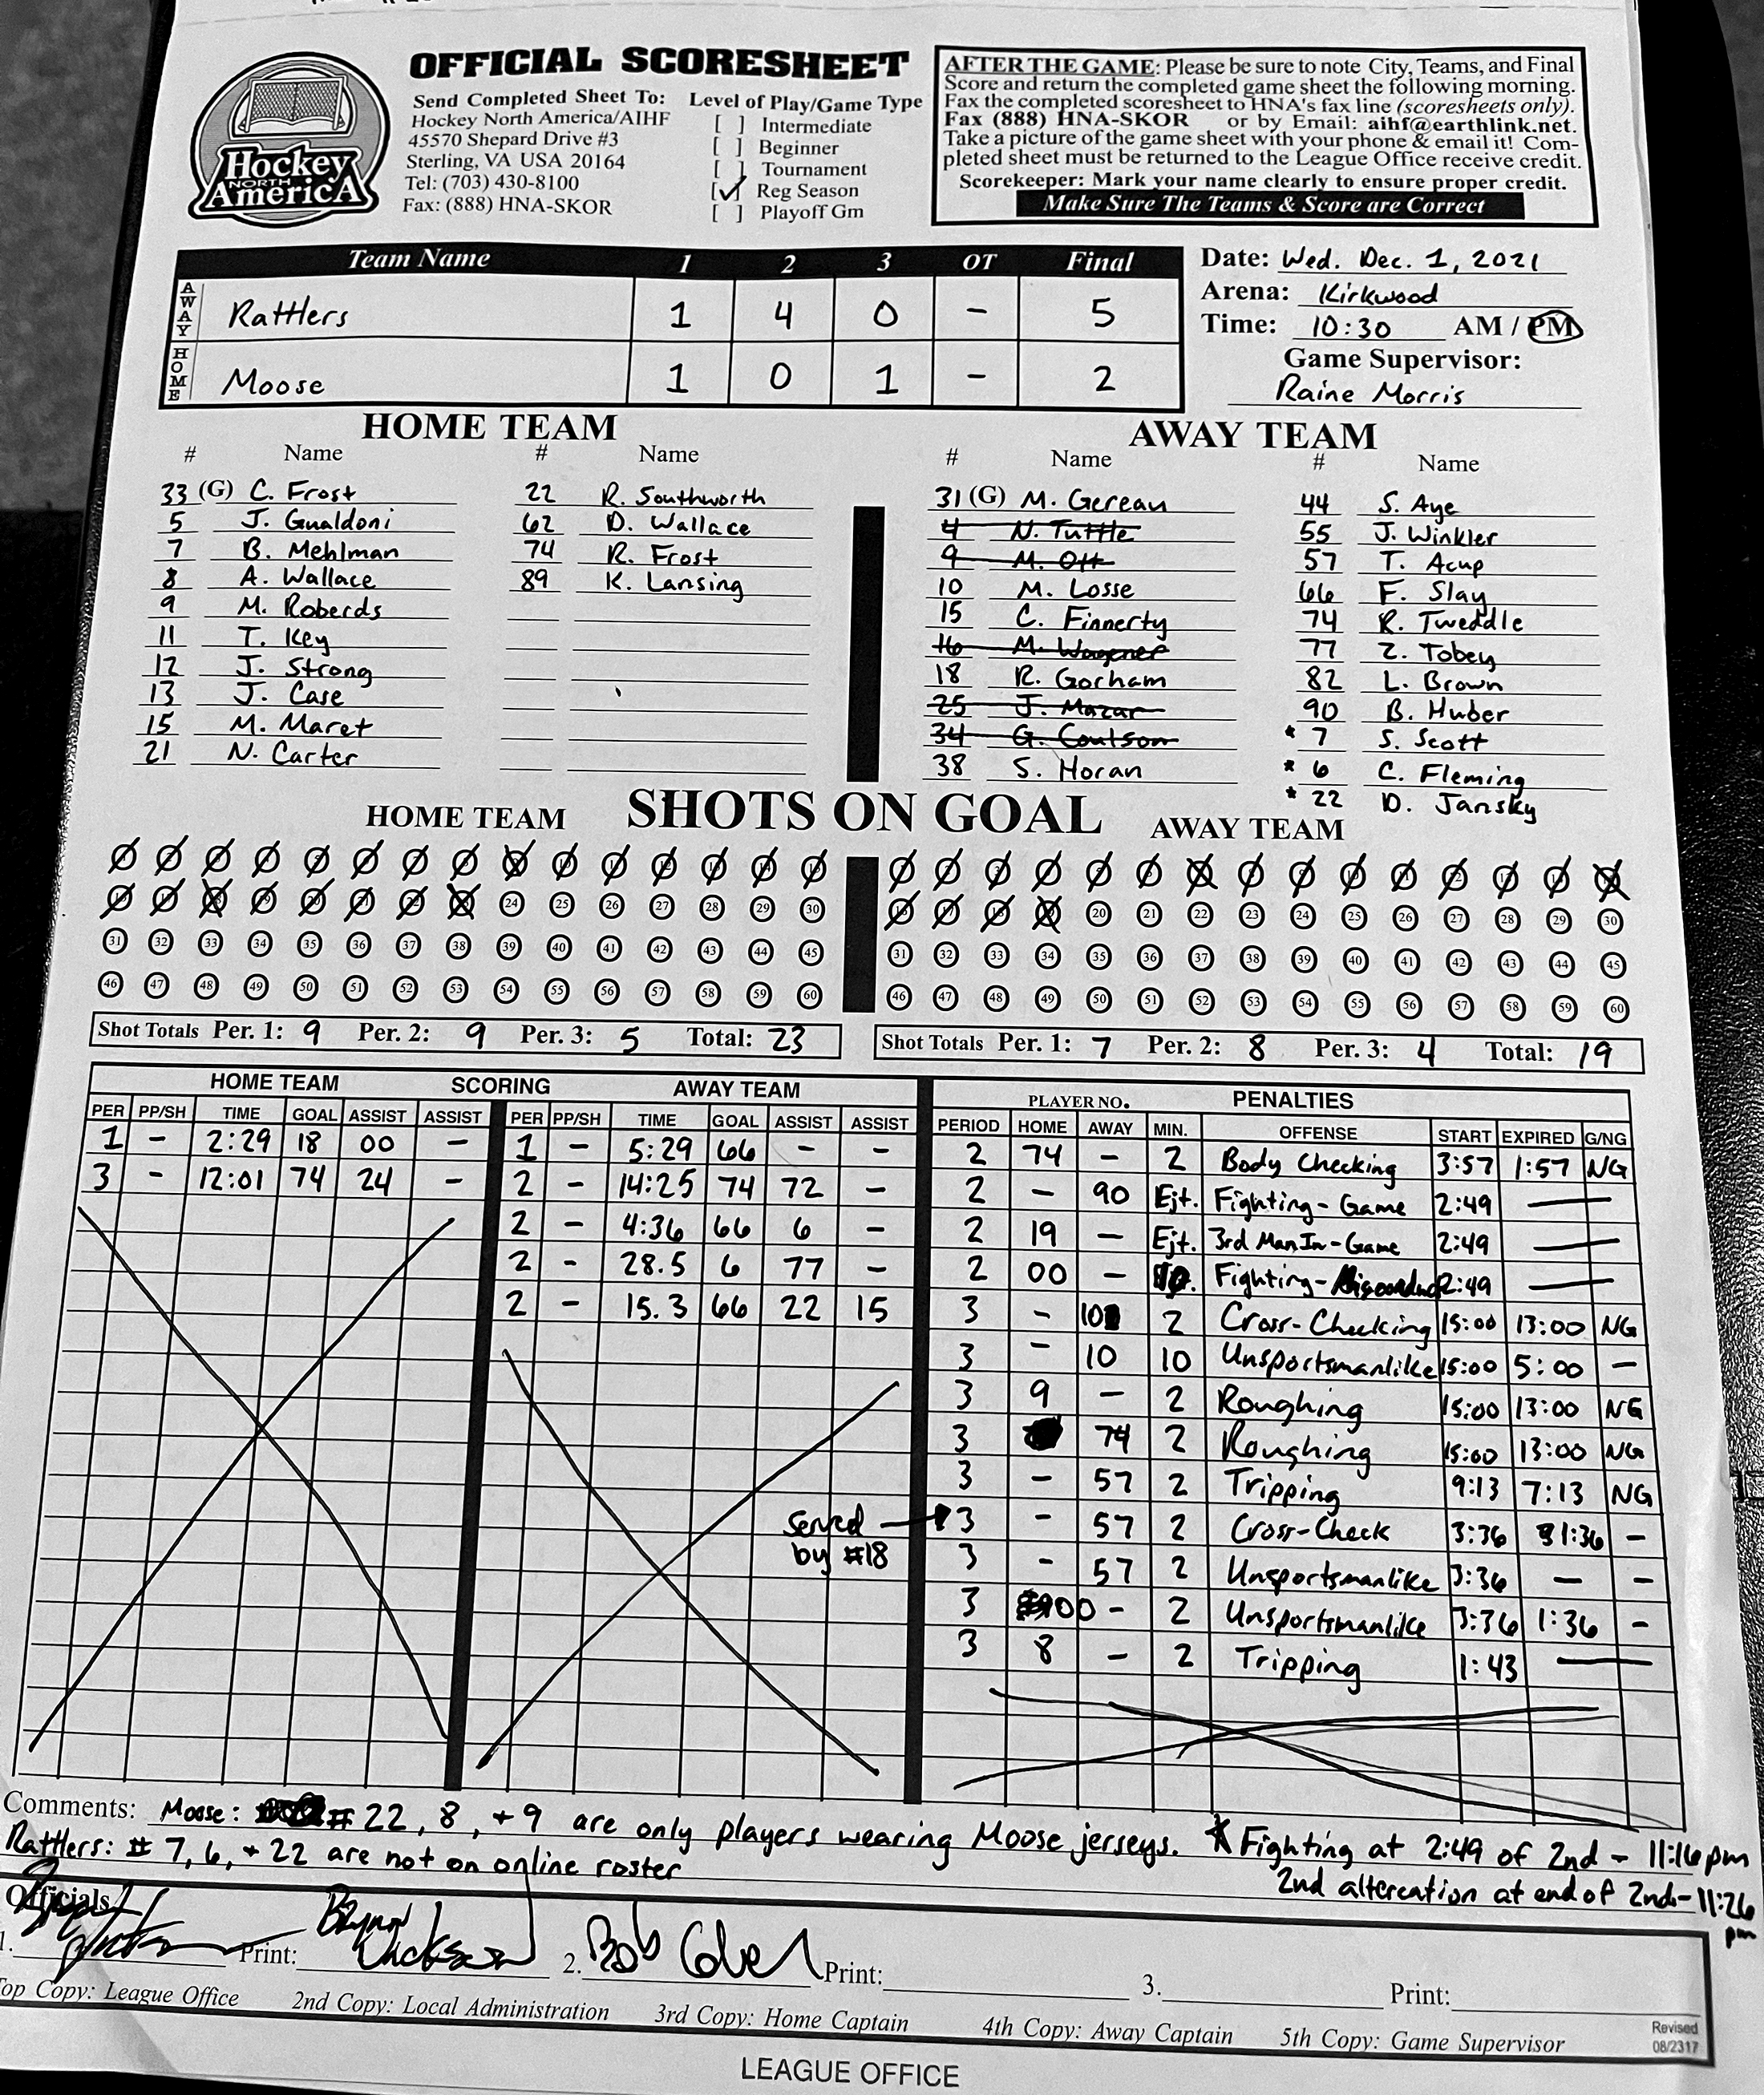 OFFICIAL SCORESHEET
Hockey
NORTH
AmericA
Send Completed Sheet To:
Hockey North America/AIHF
45570 Shepard Drive #3
Sterling, VA USA 20164
Tel: (703) 430-8100
Fax: (888) HNA-SKOR
Level of Play/Game Type
[ ] Intermediate
[ ] Beginner
[ ] Tournament
[✓] Reg Season
[ ] Playoff Gm
AFTER THE GAME: Please be sure to note City, Teams, and Final
Score and return the completed game sheet the following morning.
Fax the completed scoresheet to HNA's fax line (scoresheets only).
Fax (888) HNA-SKOR or by Email: aihf@earthlink.net.
Take a picture of the game sheet with your phone & email it! Com-
pleted sheet must be returned to the League Office receive credit.
Scorekeeper: Mark your name clearly to ensure proper credit.
Make Sure The Teams & Score are Correct
Team Name 1 2 3 OT Final
AWAY Rattlers 1 4 0 - 5
HOME Moose 1 0 1 - 2
Date: Wed. Dec. 1, 2021
Arena: Kirkwood
Time: 10:30 AM / PM
Game Supervisor:
Raine Morris
HOME TEAM
# Name # Name
33 (G) C. Frost 22 R. Southworth
5 J. Gualdoni 62 D. Wallace
7 B. Mehlman 74 R. Frost
8 A. Wallace 89 K. Lansing
9 M. Roberds
11 T. Key
12 J. Strong
13 J. Case
15 M. Maret
21 N. Carter
AWAY TEAM
# Name # Name
31 (G) M. Gereau 44 S. Aye
4 N. Tuttle 55 J. Winkler
9 M. Ott 57 T. Acup
10 M. Losse 66 F. Slay
15 C. Finnerty 74 R. Tweddle
16 M. Wagener 77 Z. Tobey
18 R. Gorham 82 L. Brown
25 J. Mazar 90 B. Huber
34 G. Coulson * 7 S. Scott
38 S. Horan * 6 C. Fleming
* 22 D. Jansky
HOME TEAM SHOTS ON GOAL AWAY TEAM
24 25 26 27 28 29 30
20 21 22 23 24 25 26 27 28 29 30
31 32 33 34 35 36 37 38 39 40 41 42 43 44 45
31 32 33 34 35 36 37 38 39 40 41 42 43 44 45
46 47 48 49 50 51 52 53 54 55 56 57 58 59 60
46 47 48 49 50 51 52 53 54 55 56 57 58 59 60
Shot Totals Per. 1: 9 Per. 2: 9 Per. 3: 5 Total: 23
Shot Totals Per. 1: 7 Per. 2: 8 Per. 3: 4 Total: 19
HOME TEAM SCORING AWAY TEAM
PER PP/SH TIME GOAL ASSIST ASSIST PER PP/SH TIME GOAL ASSIST ASSIST
1 - 2:29 18 00 - 1 - 5:29 66 - -
3 - 12:01 74 24 - 2 - 14:25 74 72 -
2 - 4:36 66 6 -
2 - 28.5 6 77 -
2 - 15.3 66 22 15
Served
by #18
PLAYER NO. PENALTIES
PERIOD HOME AWAY MIN. OFFENSE START EXPIRED G/NG
2 74 - 2 Body Checking 3:57 1:57 NG
2 - 90 Ejt. Fighting - Game 2:49
2 19 - Ejt. 3rd Man In - Game 2:49
2 00 - Fighting - 2:49
3 - 10 2 Cross-Checking 15:00 13:00 NG
3 - 10 10 Unsportsmanlike 15:00 5:00 -
3 9 - 2 Roughing 15:00 13:00 NG
3 74 2 Roughing 15:00 13:00 NG
3 - 57 2 Tripping 9:13 7:13 NG
3 - 57 2 Cross-Check 3:36 1:36 -
3 - 57 2 Unsportsmanlike 3:36 - -
3 00 - 2 Unsportsmanlike 3:36 1:36 -
3 8 - 2 Tripping 1:43
Comments: Moose: # 22, 8, + 9 are only players wearing Moose jerseys. * Fighting at 2:49 of 2nd - 11:16 pm
Rattlers: # 7, 6, + 22 are not on online roster
2nd altercation at end of 2nd - 11:26
pm
Officials
1. Print: 2. Bob Print: 3. Print:
Top Copy: League Office 2nd Copy: Local Administration 3rd Copy: Home Captain 4th Copy: Away Captain 5th Copy: Game Supervisor
Revised
08/2317
LEAGUE OFFICE